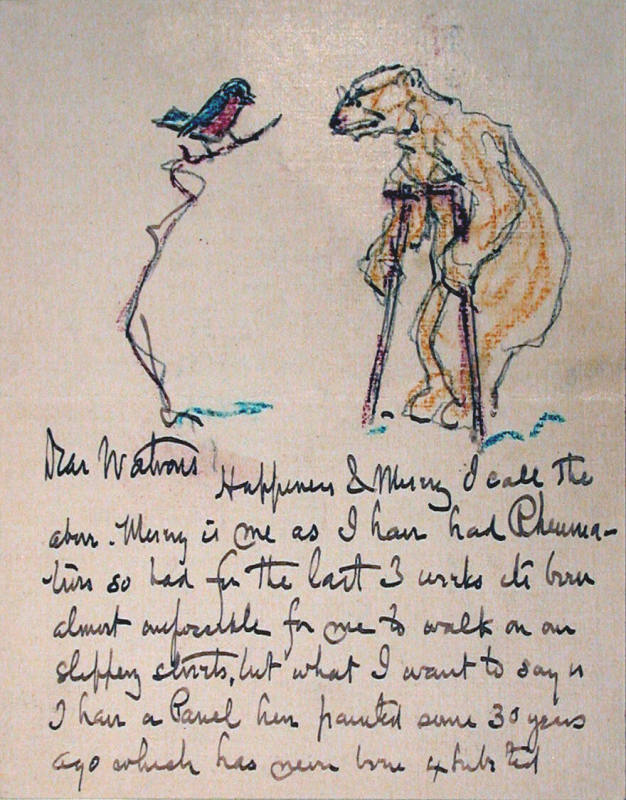 Dear Watrous
Happiness & Misery I call the
above. Misery is me as I have had Rheuma-
tism so bad for the last 3 weeks its been
almost impossible for me to walk on our
slippery streets, but what I want to say is
I have a Panel here painted some 30 years
ago which has never been exhibited